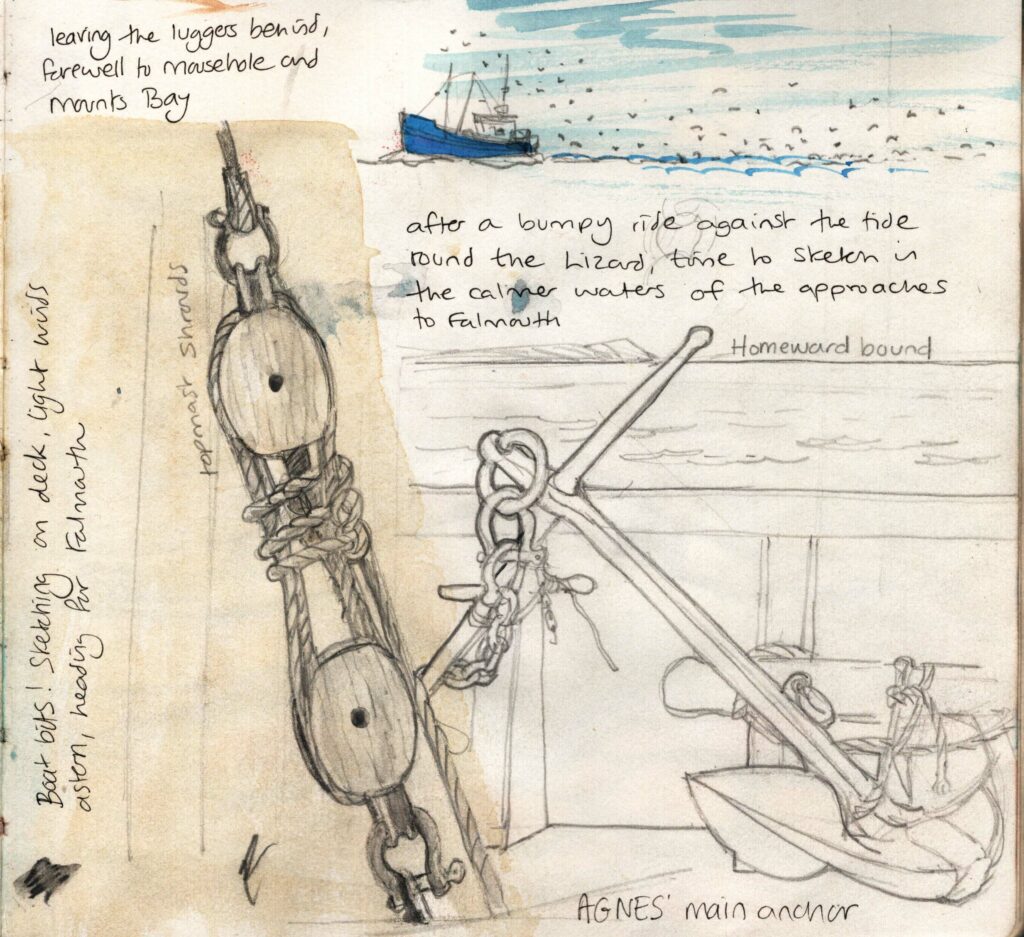 leaving the luggers behind,
farewell to mousehole and
mounts Bay
after a bumpy ride against the tide
round the Lizard, time to sketch in
the calmer waters of the approaches
to Falmouth
Homeward bound
topmast shrouds
Boat bits! Sketching on deck, light winds
astern, heading for Falmouth
AGNES' main anchor